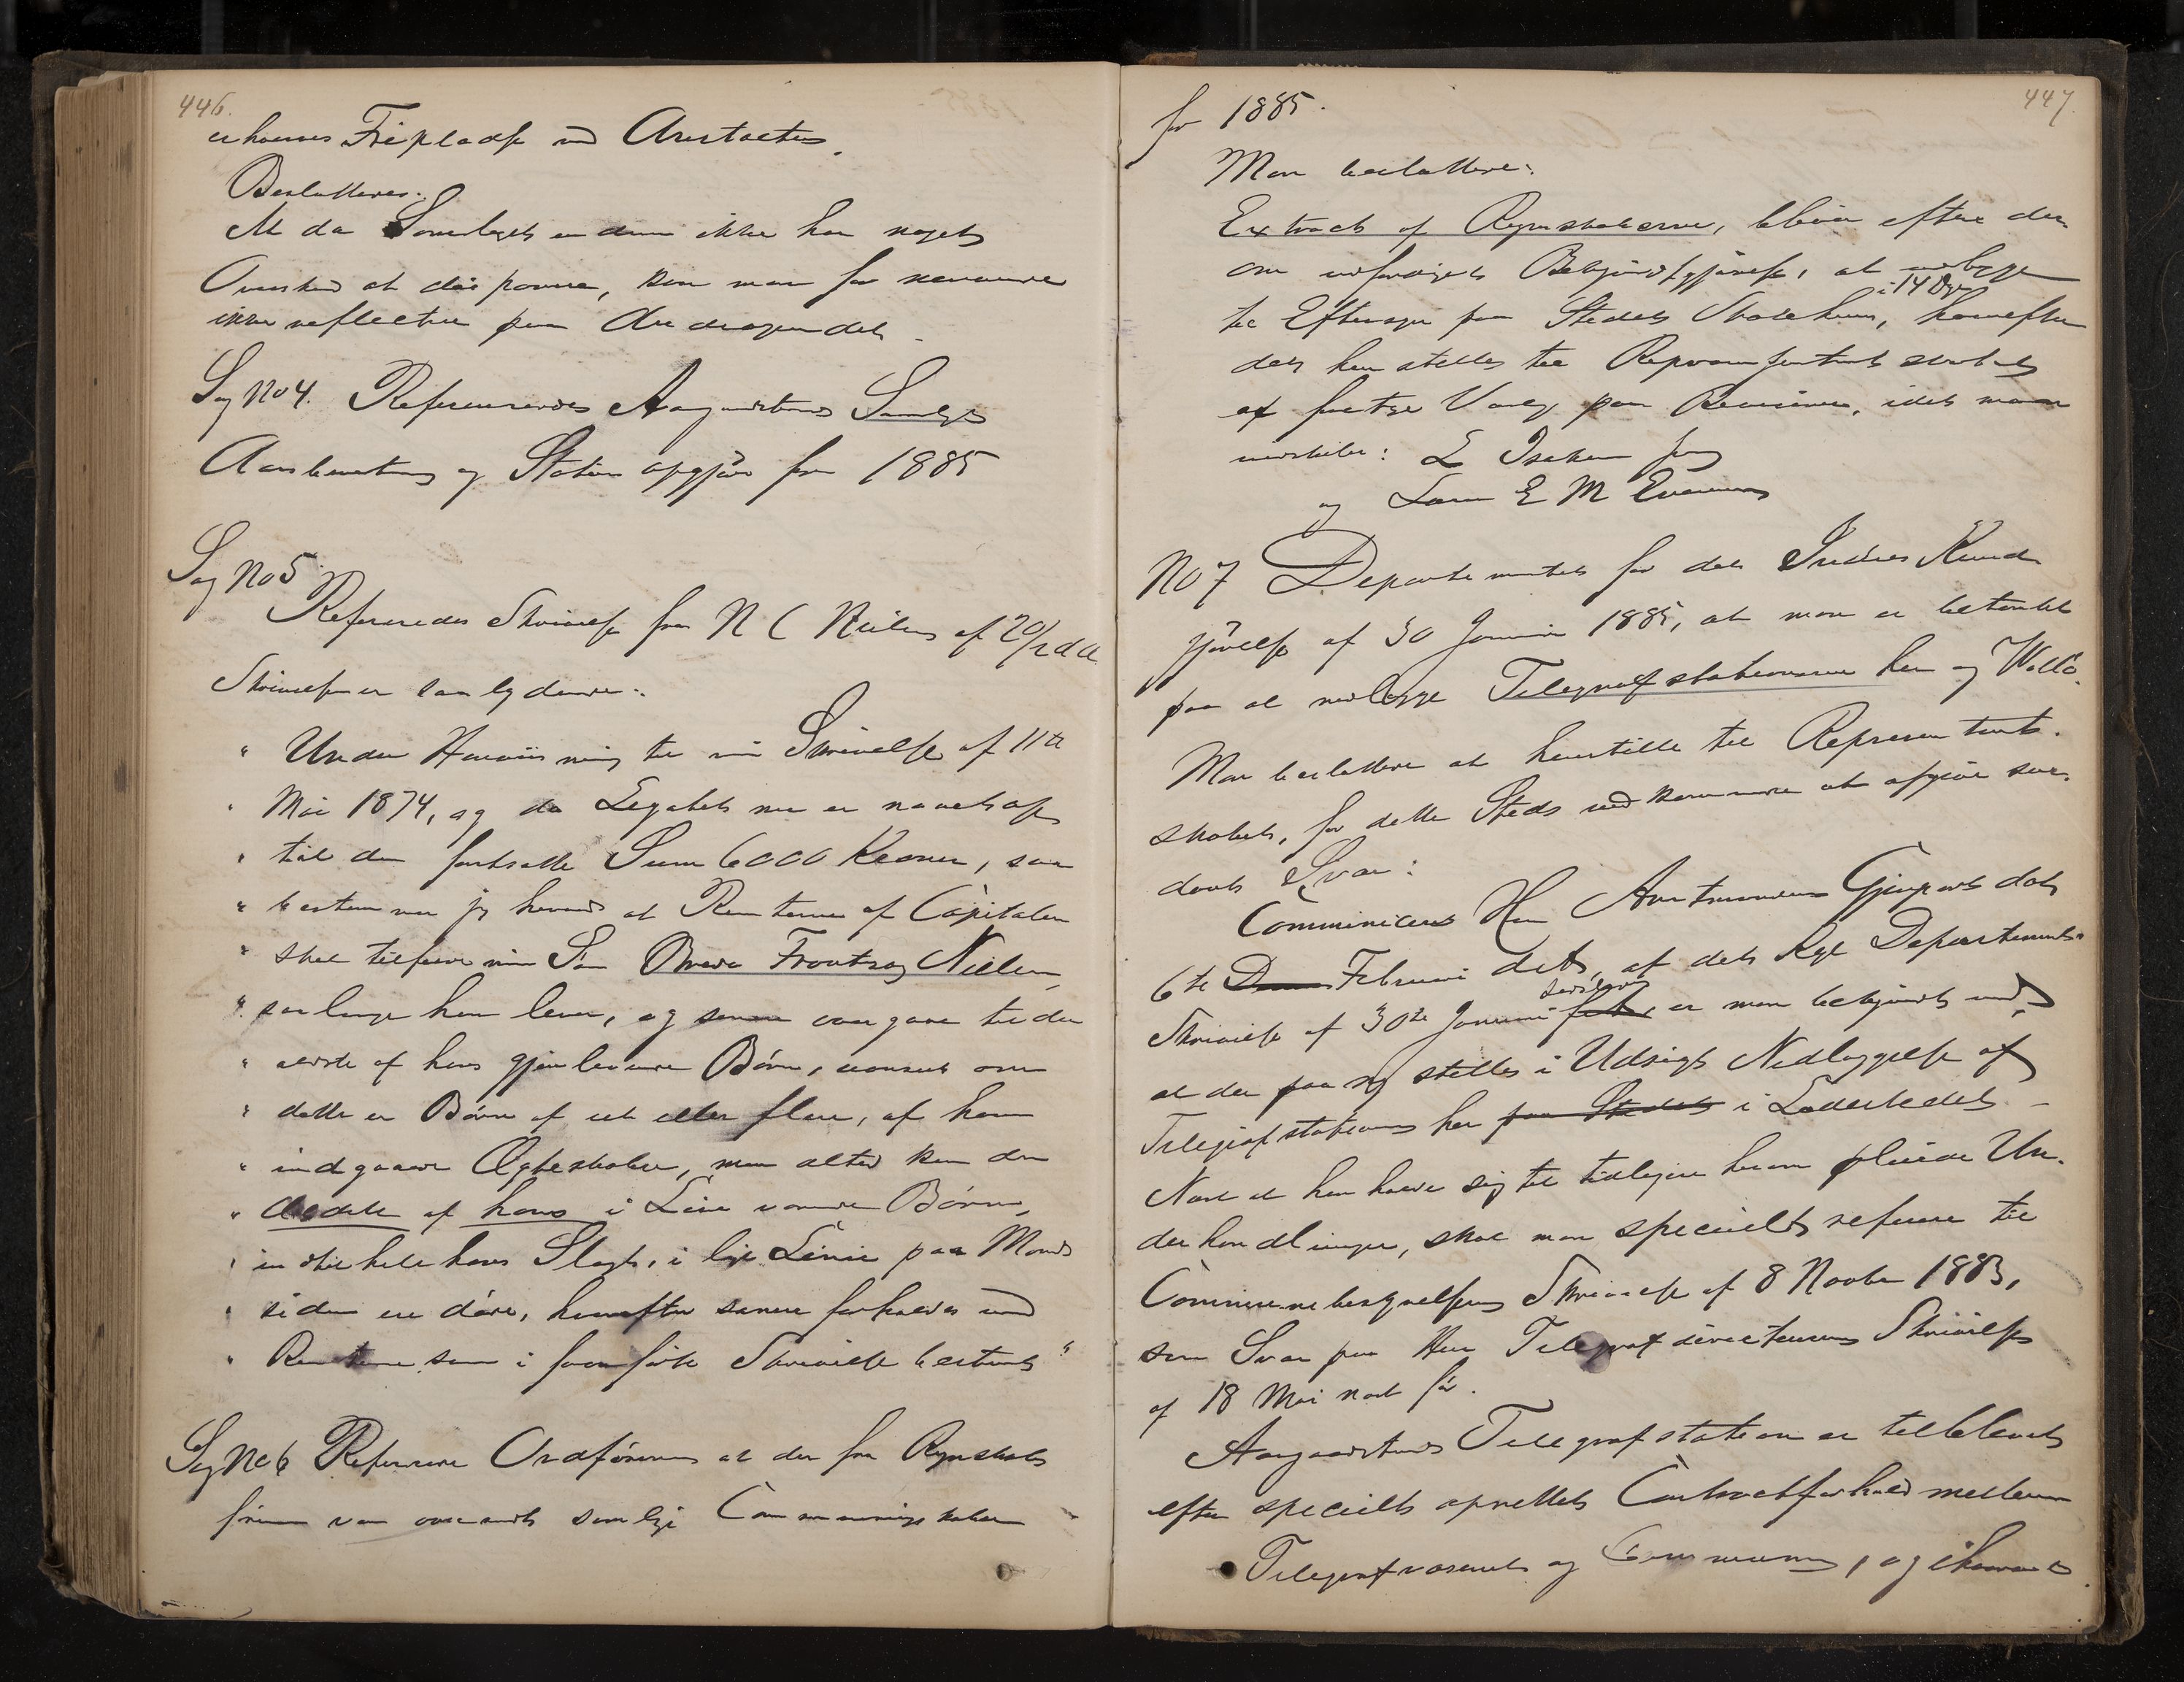 446.
erhverve Friplads ved Anstalten.
Besluttedes:
At da Samlaget endnu ikke har noget
Overskud at disponere, kan man for nærværende
ikke reflectere paa Andragendet.
Sag No 4. Refereredes Aasgaardstrands Samlags
Aarsberetning og Status opgjør for 1885
Sag No 5.
Refereredes Skrivelse fra N C Nielsen af 20/2 d A.
Skrivelsen er saa lydende:
" Under Henviisning til min Skrivelse af 11te
" Mai 1874, og da Legatet nu er naaet op
" til den fastsatte Sum 6000 Kroner, saa
" bestemmer jeg herved at Renterne af Capitalen
" skal tilfalde min Søn Nielsen
" saa længe han lever, og senere overgaae til den
" ældste af hans gjenlevende Børn, uanseet om
" dette er Børn af eet eller flere, af ham
" indgaaede Ægteskaber, men altid kun den
" ældste af hans i Live værende Børn,
" indtil hele hans Slægt, i lige Linie paa Mands
" siden ere døde, hvorefter senere forholdes med
" Renterne som i føromførte Skrivelse bestemt "
Sag No 6 Refererede Ordføreren at der fra Regnskabs
føreren var oversendt samtlige Communeregnskaber
447.
for 1885.
Man besluttede:
Extract af Regnskaberne, bliver efter der
om udfærdiget Bekjendtgjørelse, at udlægge
i 14 Dage
til Eftersyn paa Stedets Skolehuus, hvorefter
det henstilles til Repræsentantskabet
at foretage Valg paa Revisorer, idet man
indstiller: L Isaksen jung
og Lars E M Evensen
No 7 Departementet for det Indres Kund
gjørelse af 30 Januar 1885, at man er betænkt
paa at nedlægge Telegrafstationerne her og Vallø.
Man besluttede at henstille til Repræsentant-
skabet, for dette Steds vedkommende at afgive saa-
dant Svar:
Communiceret Hr Amtmandens Gjenpart dat
6te Februar d A, af det Kgl Departements
Skrivelse af 30te Januar er man bekjendt med,
at der paa ny stilles i Udsigt Nedlæggelse af
Telegrafstationen her paa Stedet i Ladestedet -
Næst at henholde sig til tidligere herom pleiede Un-
derhandlinger, skal man specielt referere til
Communebestyrelsens Skrivelse af 8 Novbr 1883,
som Svar paa Herr Telegrafdirecteurens Skrivelse
af 18 Mai næst før.
Aasgaardstrands Telegrafstation er tilblevet
efter specielt oprettet Contractforhold mellem
Telegrafvæsenet og Communen, og